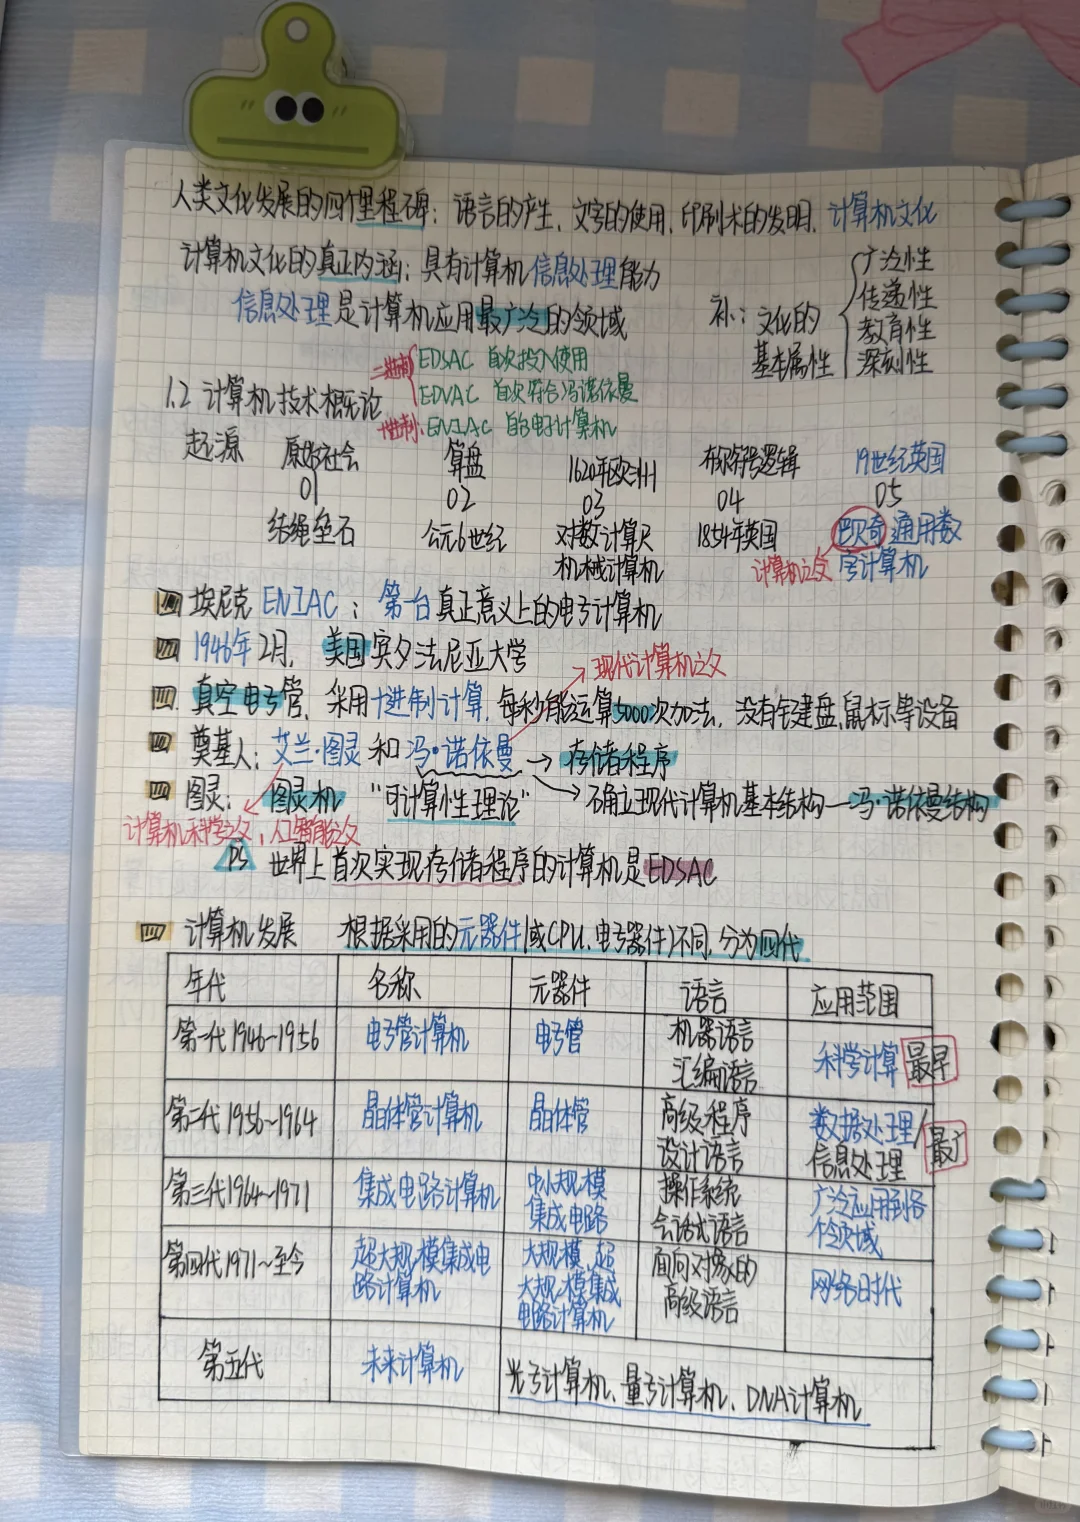 人类文化发展的四个里程碑：语言的产生、文字的使用、印刷术的发明、计算机文化
计算机文化的真正内涵：具有计算机信息处理能力
信息处理是计算机应用最广泛的领域
补：文化的基本属性
广泛性
传递性
教育性
深刻性
二进制
EDSAC 首次投入使用
EDVAC 首次符合冯诺依曼
十进制：ENIAC 的电子计算机
1.2 计算机技术概论
起源 原始社会 算盘 1620年欧洲 布尔符号逻辑 19世纪英国
01 02 03 04 05
结绳垒石 公元6世纪 对数计算尺 1854年英国 巴贝奇通用数
机械计算机 计算机之父 字计算机
埃尼克 ENIAC：第一台真正意义上的电子计算机
1946年2月，美国宾夕法尼亚大学
现代计算机之父
真空电子管，采用十进制计算，每秒能运算5000次加法，没有键盘、鼠标等设备
奠基人：艾兰·图灵和冯·诺依曼→存储程序
图灵：图灵机 "可计算性理论" →确立现代计算机基本结构—冯·诺依曼结构
计算机科学之父，人工智能之父
PS 世界上首次实现存储程序的计算机是EDSAC
计算机发展 根据采用的元器件(或CPU、电子器件)不同，分为四代
年代 名称 元器件 语言 应用范围
第一代1946~1956 电子管计算机 电子管 机器语言 汇编语言 科学计算 最早
第二代1956~1964 晶体管计算机 晶体管 高级程序设计语言 数据处理/信息处理 最广
第三代1964~1971 集成电路计算机 中小规模集成电路 操作系统 会话式语言 广泛应用到各个领域
第四代1971~至今 超大规模集成电路计算机 大规模、超大规模集成电路计算机 面向对象的高级语言 网络时代
第五代 未来计算机 光子计算机、量子计算机、DNA计算机